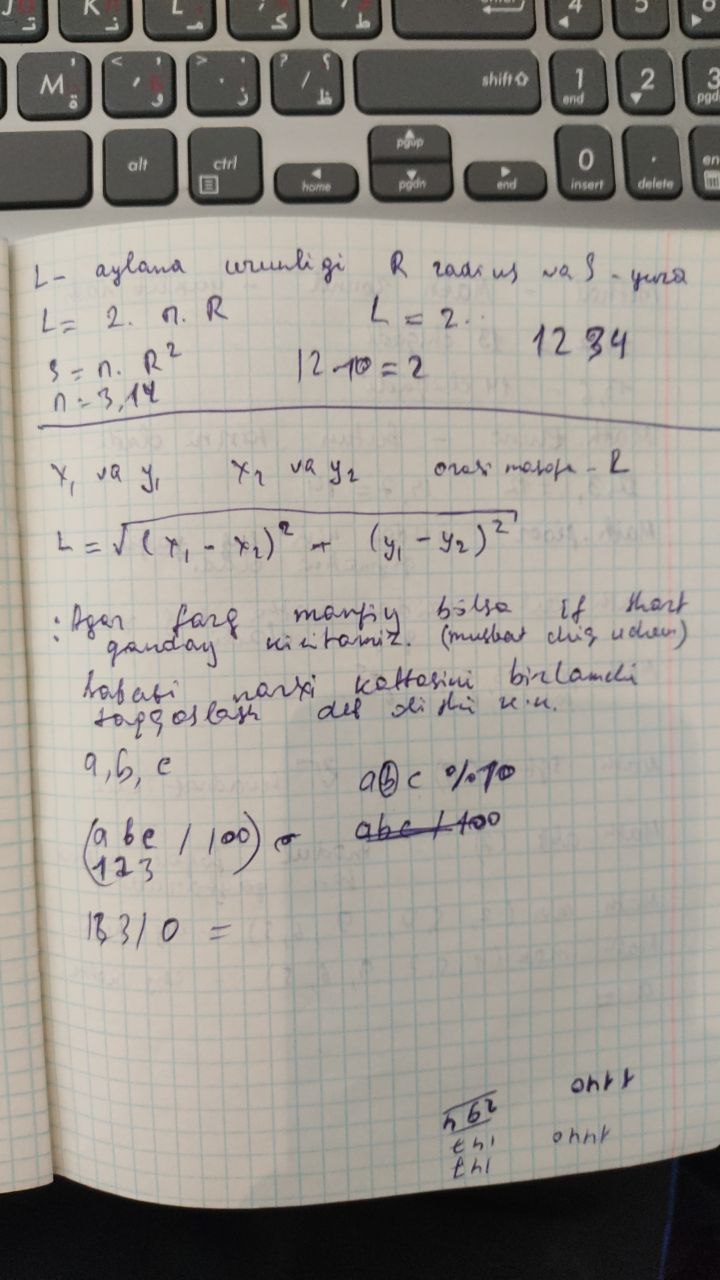 M
< , و
> . ز
? / ظ
shift
1 end
2
3 pgdn
alt
ctrl
home
pgup
pgdn
end
0 insert
. delete
L- aylana uzunligi R radius va S - yuza
L = 2. п. R L = 2..
S = п. R² 12-10 = 2 1234
п = 3,14
x₁ va y₁ x₂ va y₂ orasi masofa - R
L = √(x₁ - x₂)² + (y₁ - y₂)²
: Agar farq manfiy bo'lsa if shart
qanday kiritamiz. (musbat chiq uchun)
Sababi narxi kattasini birlamchi
taqqoslash deb olishi k.k.
a, b, c abc %10
(abc / 100) abc / 100
123
/ 0 =
1140
294
147 1440
147